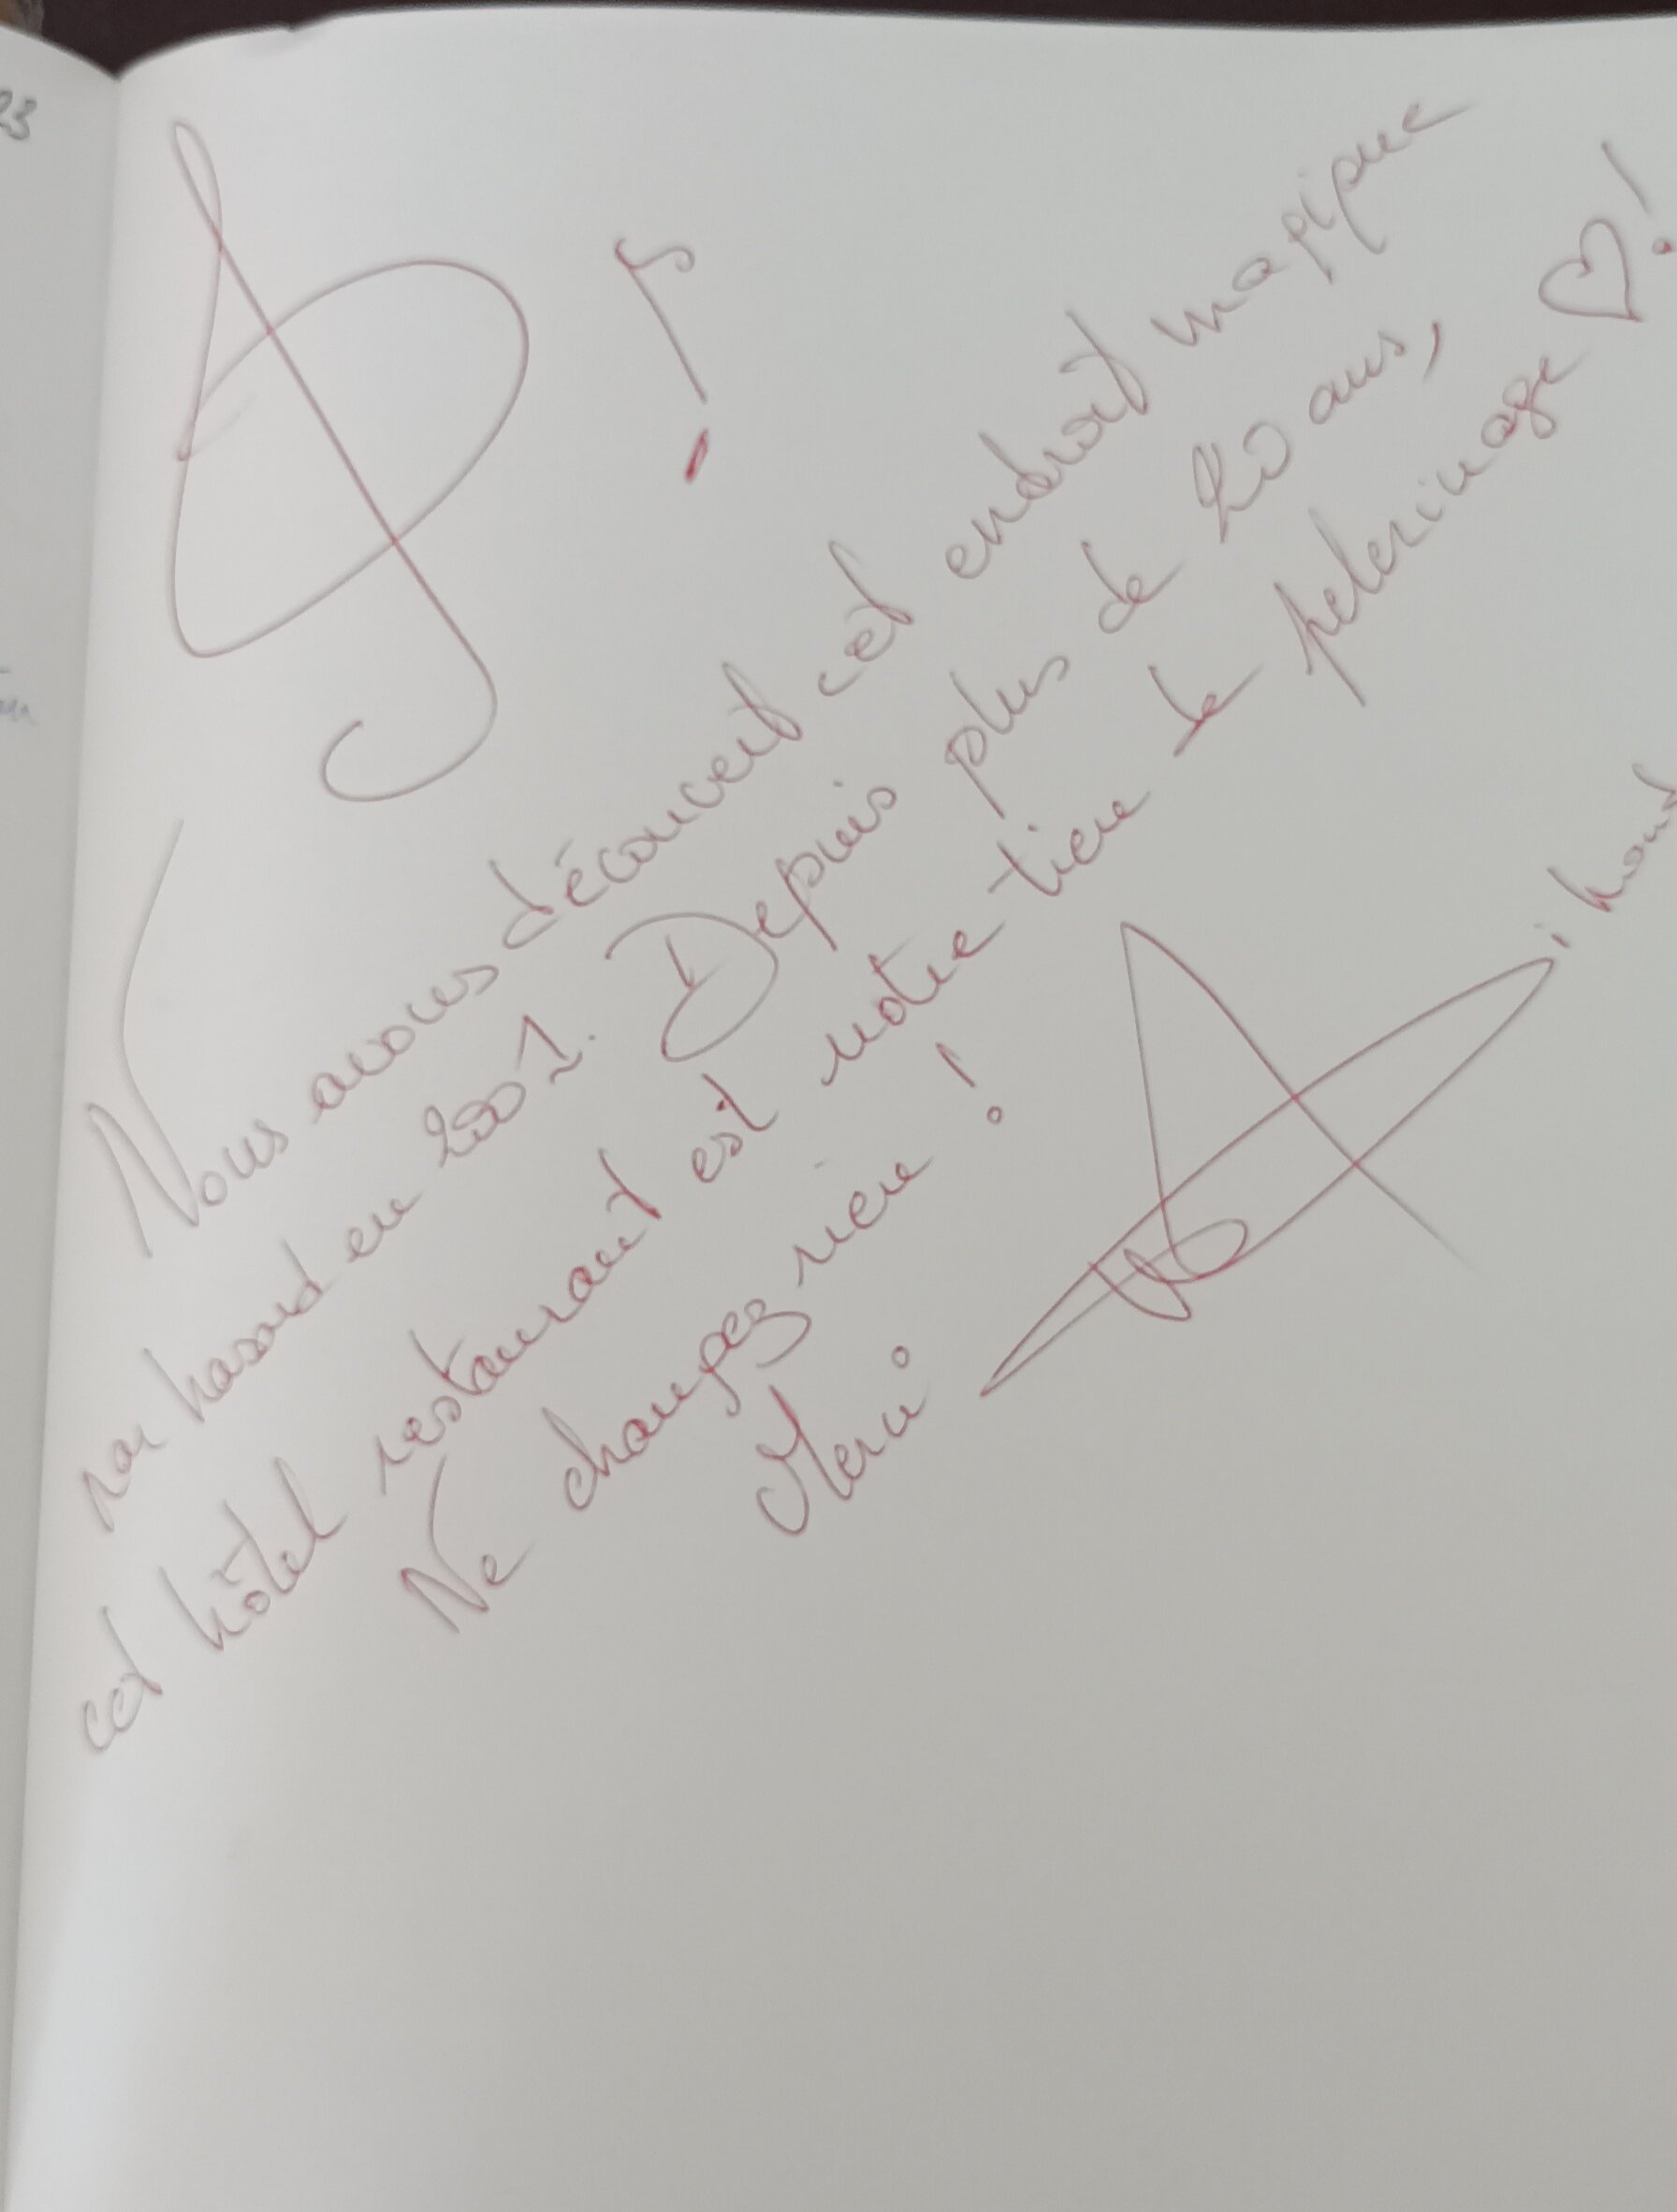 23
Nous avons découvert cet endroit magique
par hasard en 2001. Depuis plus de 20 ans,
cet hôtel restaurant est notre lieu de pelerinage ♡!
Ne changez rien !
Merci